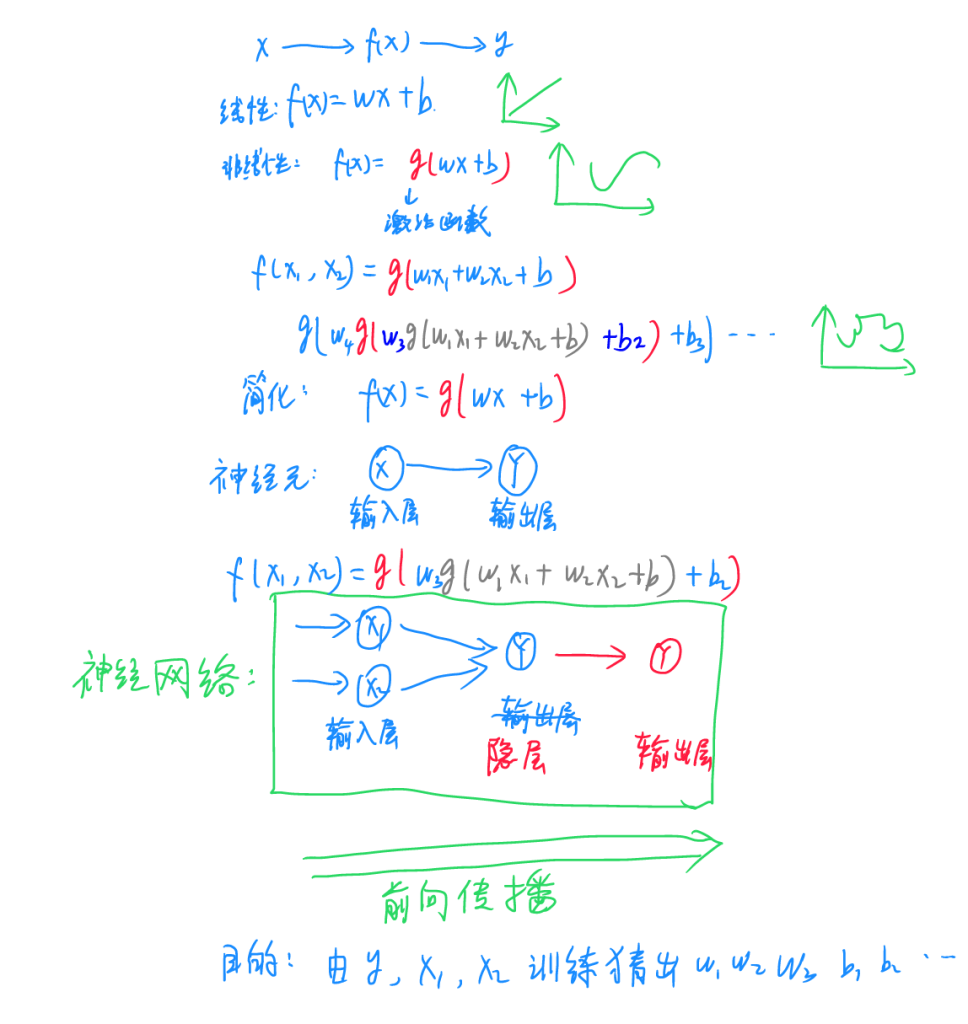 x → f(x) → y
线性: f(x)=wx+b.
非线性: f(x)= g(wx+b)
↓
激活函数
f(x₁,x₂)=g(w₁x₁+w₂x₂+b)
g(w₄g(w₃g(w₁x₁+w₂x₂+b)+b₂)+b₃)----
简化: f(x)=g(wx+b)
神经元: X → Y
输入层 输出层
f(x₁,x₂)=g(w₃g(w₁x₁+w₂x₂+b)+b₂)
神经网络:
X₁ Y → Y
X₂
输入层 输出层
隐层 输出层
前向传播
目的: 由y, x₁, x₂训练猜出w₁w₂w₃ b₁ b₂ ...